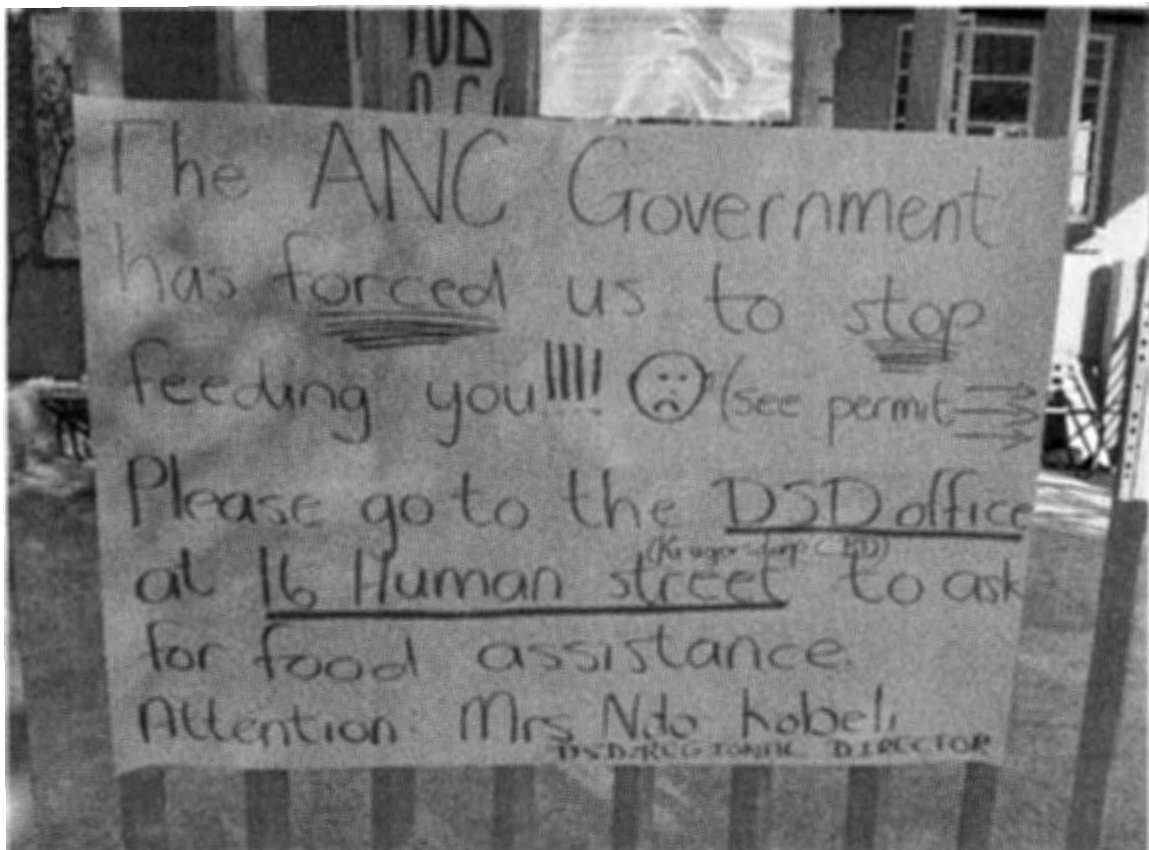 The ANC Government
has forced us to stop
feeding you!!!! (see permit
Please go to the DSD office
(Krugersdorp CBD)
at 16 Human street to ask
for food assistance.
Attention: Mrs Ndo Kobeli
DSD REGIONAL DIRECTOR